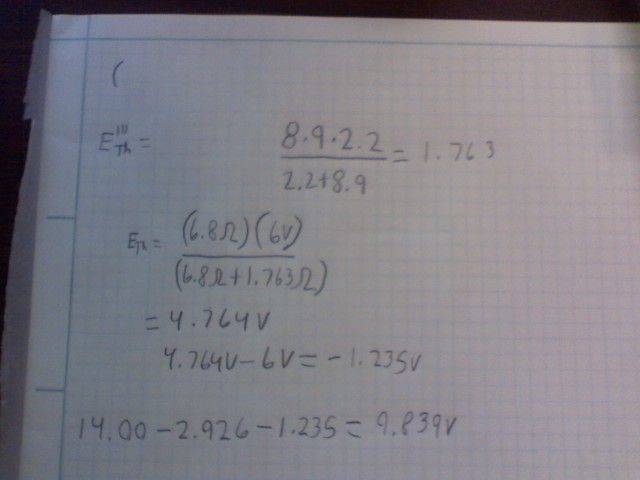 (
E'''Th = 8.9·2.2 / 2.2+8.9 = 1.763
ETh = (6.8Ω)(6V) / (6.8Ω+1.763Ω)
= 4.764V
4.764V-6V = -1.235V
14.00-2.926-1.235 = 9.839V